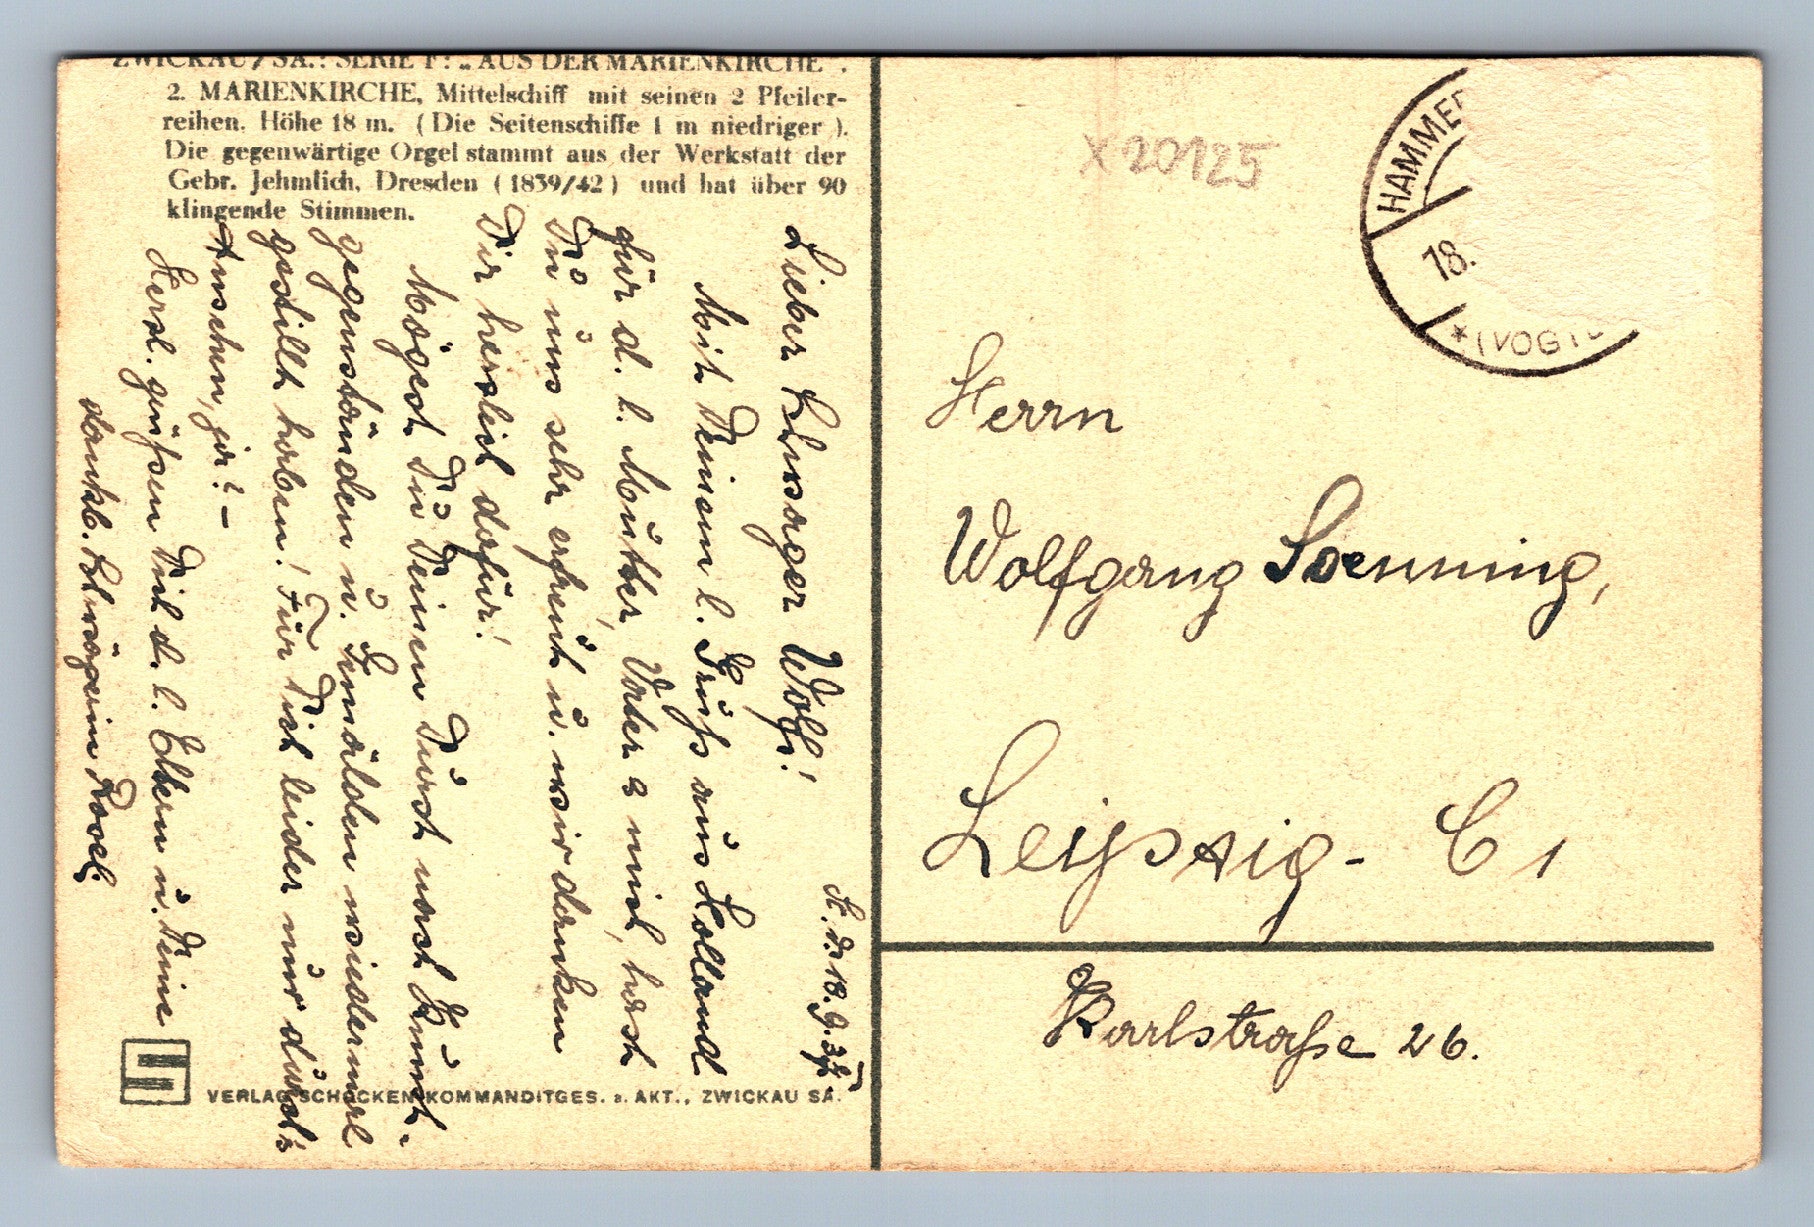 ZWICKAU/SA.: SERIE F: „AUS DER MARIENKIRCHE".
2. MARIENKIRCHE, Mittelschiff mit seinen 2 Pfeiler-
reihen. Höhe 18 m. (Die Seitenschiffe 1 m niedriger).
Die gegenwärtige Orgel stammt aus der Werkstatt der
Gebr. Jehmlich, Dresden (1839/42) und hat über 90
klingende Stimmen.
d. 18.9.
Lieber Schwager Wolf!
Mit Deinem l. Gruß aus Holland
für d. l. Mutter, Vater & mich, hast
Du uns sehr erfreut u. wir danken
Dir herzlich dafür!
Mögest Du Deinen Durst nach Kunst-
gegenständen u. Gemälden wiedermal
gestillt haben! Für Dich leider nur durch's
Ansehen, ja? –
Herzl. grüßen Dich d. l. Eltern u. Deine
dankb. Schwägerin Rosel.
VERLAG SCHOCKEN KOMMANDITGES. a. AKT., ZWICKAU SA.
X 20125
HAMMER
18.
* (VOGTL
Herrn
Wolfgang Soenning,
Leipzig - C 1
Karlstraße 26.